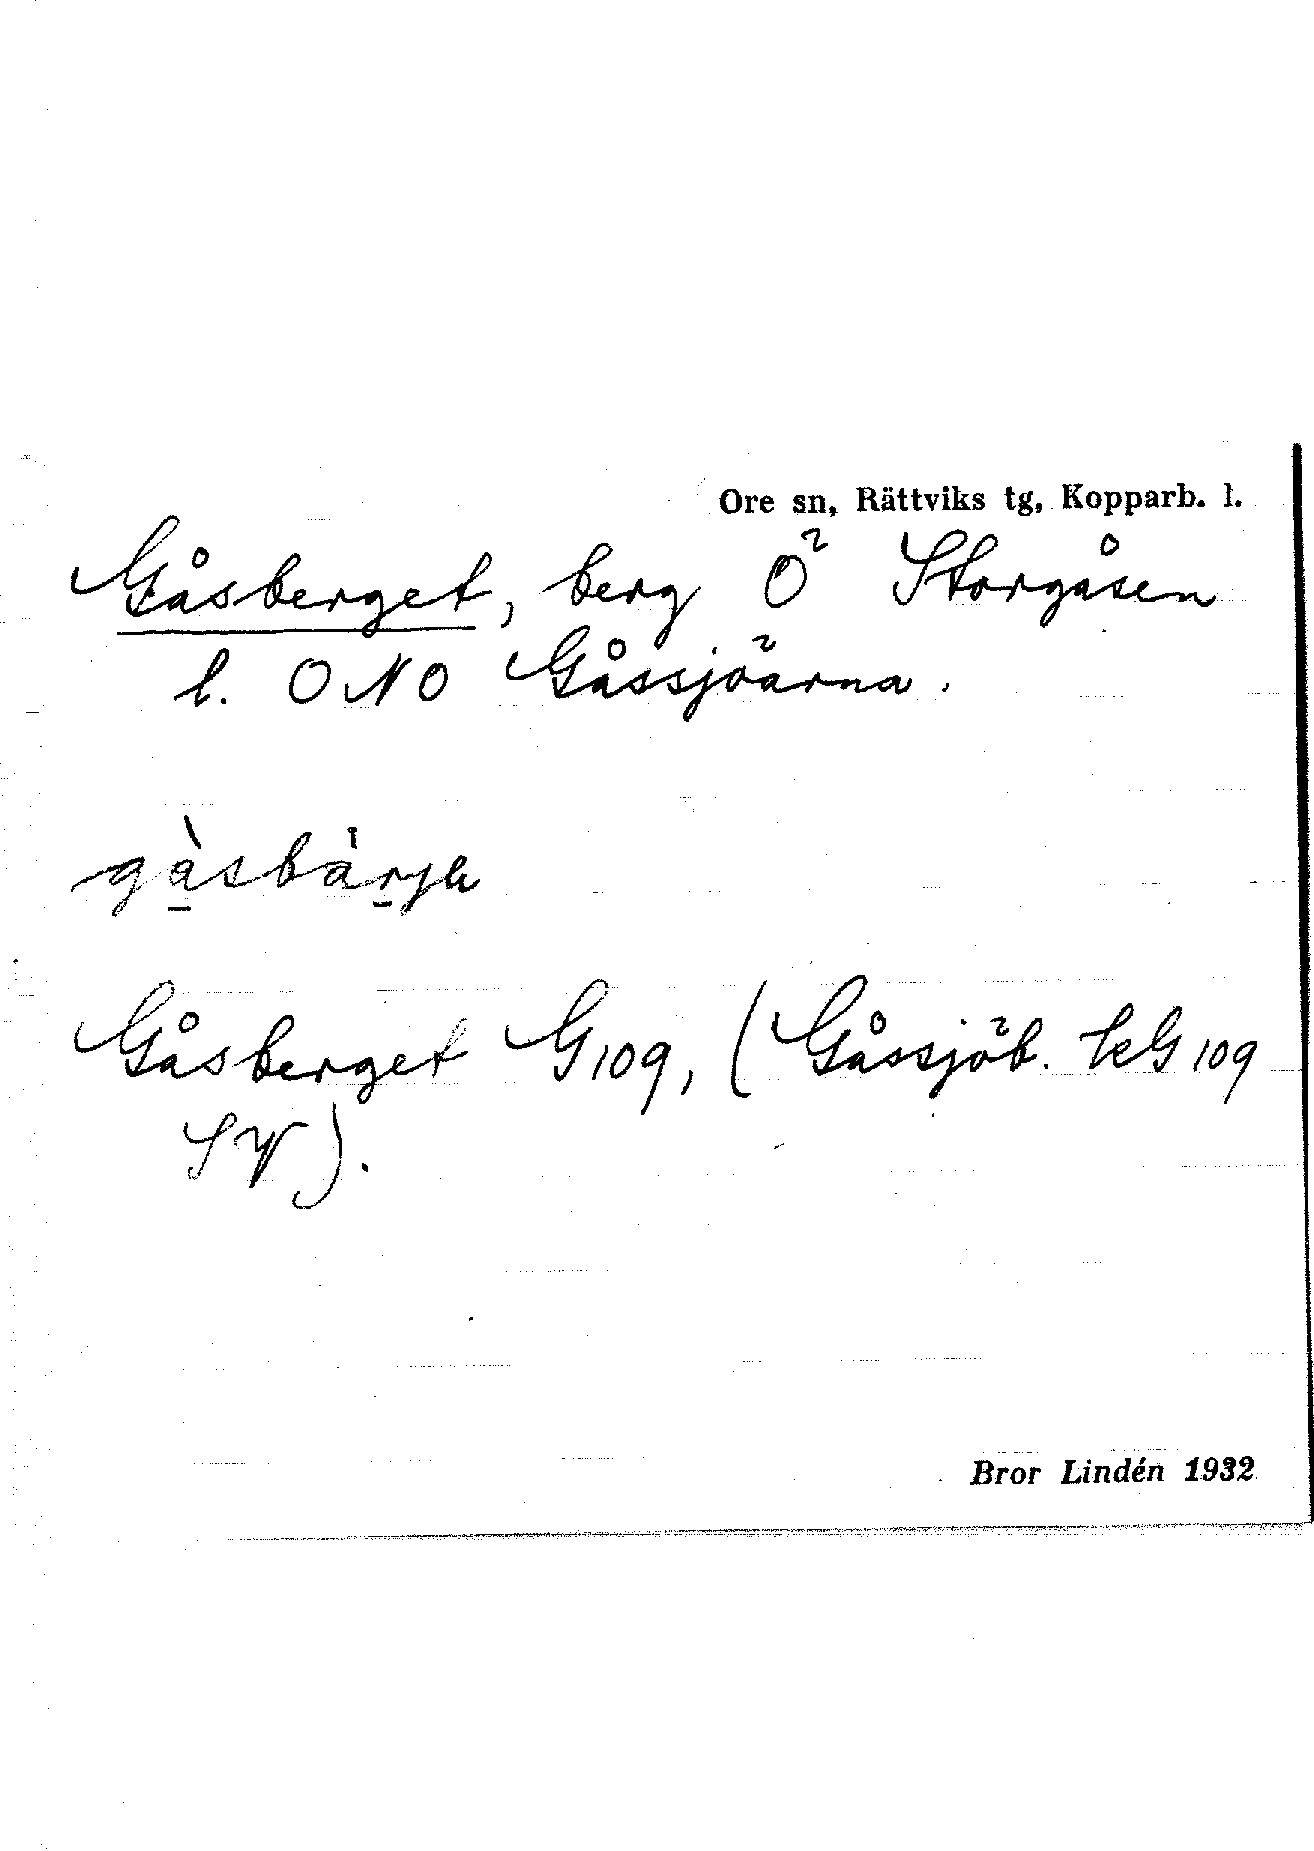 Ore sn, Rättviks tg, Kopparb. l.
Gåsberget, berg Ö Storgåsen
l. ONO Gåssjöarna.
gàsbàrjh
Gåsberget G109, (Gåssjöb. kG109
SV).
Bror Lindén 1932